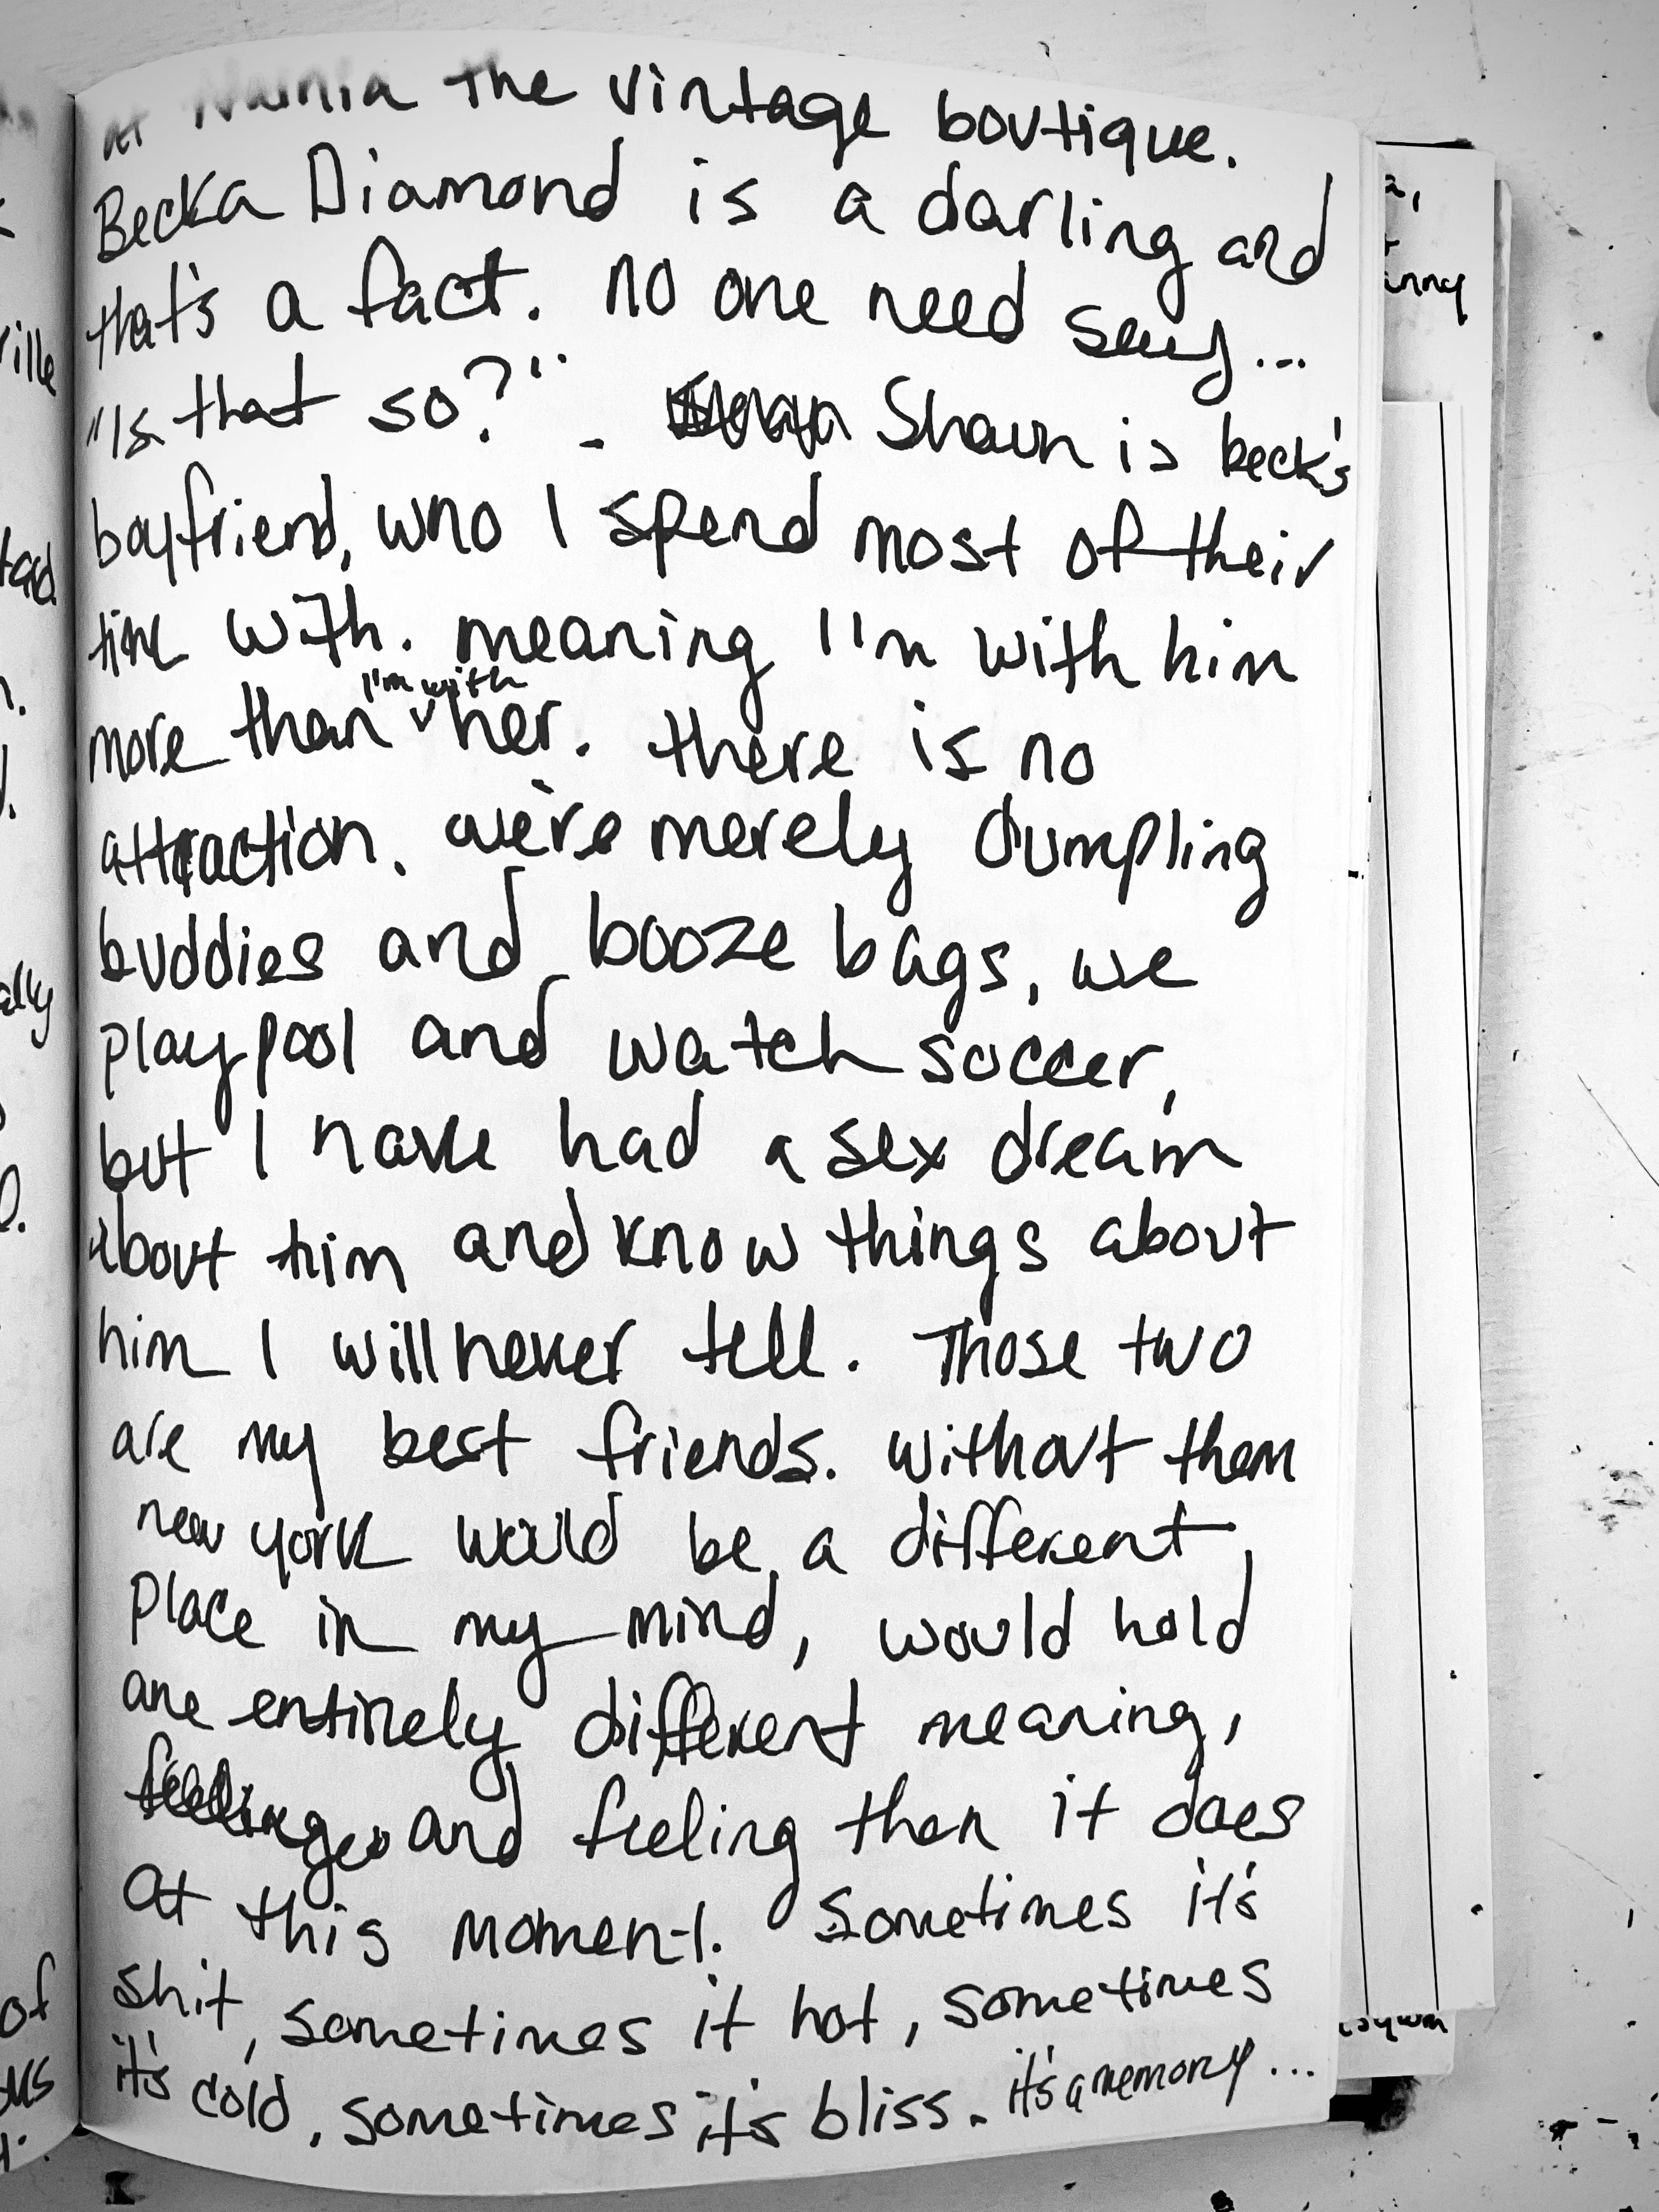 at Narnia the vintage boutique.
Becka Diamond is a darling and
that's a fact. no one need say...
"Is that so?" - Shaun is beck's
boyfriend, who I spend most of their
time with. meaning I'm with him
I'm with
more than her. there is no
attraction. we're merely dumpling
buddies and booze bags, we
play pool and watch soccer,
but I have had a sex dream
about him and know things about
him I will never tell. Those two
are my best friends. without them
new york would be a different
place in my mind, would hold
ane entirely different meaning,
and feeling then it does
at this moment. Sometimes it's
shit, sometimes it hot, sometimes
it's cold, sometimes it's bliss. it's a memory...
ville
ally
of